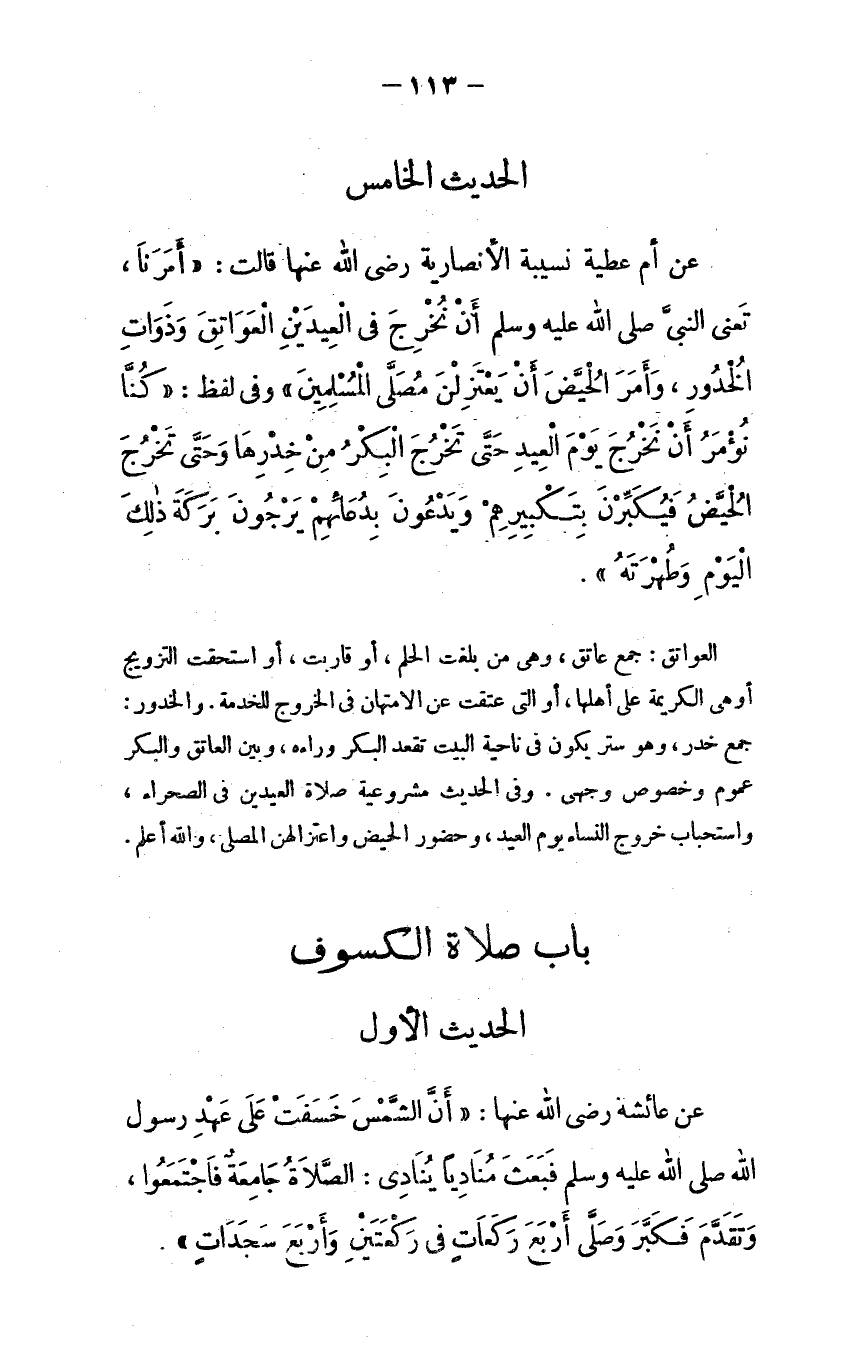 — ١١٣ —
الحديث الخامس
عن أم عطية نسيبة الأنصارية رضى الله عنها قالت : « أَمَرَنَا ،
تَعنى النبىَّ صلى الله عليه وسلم أَنْ نُخْرِجَ فى الْعِيدَيْنِ الْعَوَاتِقَ وَذَوَاتِ
الْخُدُورِ ، وَأَمَرَ الْحُيَّضَ أَنْ يَعْتَزِلْنَ مُصَلَّى الْمُسْلِمِينَ » وفى لفظ : « كُنَّا
نُؤْمَرُ أَنْ نَخْرُجَ يَوْمَ الْعِيدِ حَتَّى تَخْرُجَ الْبِكْرُ مِنْ خِدْرِهَا وَحَتَّى تَخْرُجَ
الْحُيَّضُ فَيُكَبِّرْنَ بِتَكْبِيرِهِمْ وَيَدْعُونَ بِدُعَائِهِمْ يَرْجُونَ بَرَكَةَ ذٰلِكَ
الْيَوْمِ وَطُهْرَتَهُ » .
العواتق : جمع عاتق ، وهى من بلغت الحلم ، أو قاربت ، أو استحقت التزويج
أوهى الكريمة على أهلها ، أو التى عتقت عن الامتهان فى الخروج للخدمة . والخدور :
جمع خدر ، وهو ستر يكون فى ناحية البيت تقعد البكر وراءه ، وبين العاتق والبكر
عموم وخصوص وجهى . وفى الحديث مشروعية صلاة العيدين فى الصحراء ،
واستحباب خروج النساء يوم العيد ، وحضور الحيض واعتزالهن المصلى ، والله أعلم .
باب صلاة الكسوف
الحديث الأول
عن عائشة رضى الله عنها : « أَنَّ الشَّمْسَ خَسَفَتْ عَلَى عَهْدِ رسول
الله صلى الله عليه وسلم فَبَعَثَ مُنَادِياً يُنَادِى : الصَّلَاةُ جَامِعَةٌ فَاجْتَمَعُوا ،
وَتَقَدَّمَ فَكَبَّرَ وَصَلَّى أَرْبَعَ رَكَعَاتٍ فى رَكْعَتَيْنِ وَأَرْبَعَ سَجَدَاتٍ » .